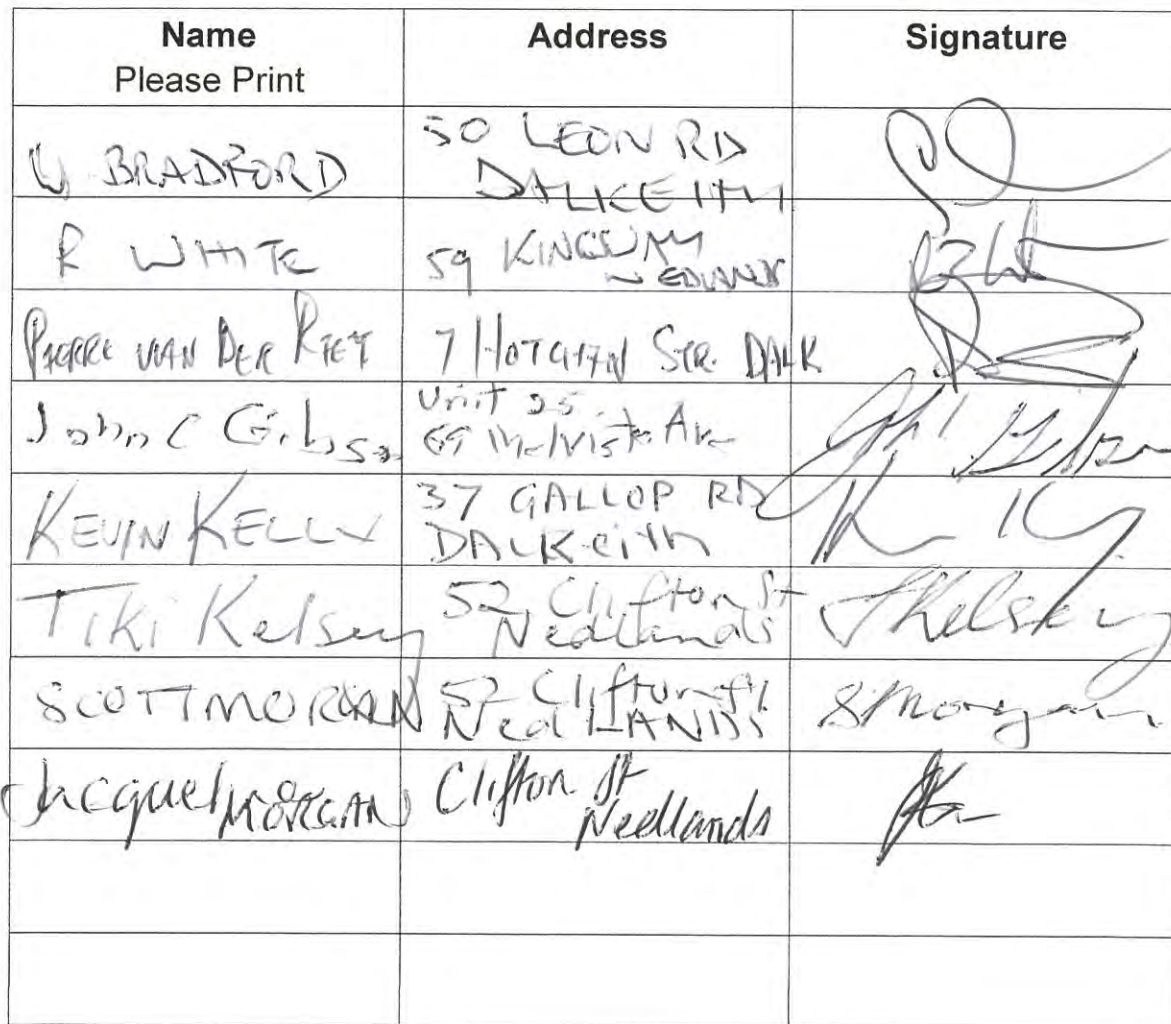 Name Address Signature
Please Print
W BRADFORD 50 LEON RD
DALKEITH
R WHITE 59 KINGSWAY
NEDLANDS
PIERRE VAN DER RIET 7 STR. DALK
John C Gibson Unit 25
69 Melvista Ave
KEVIN KELLY 37 GALLOP RD
DALKEITH
Tiki Kelsey 52 Clifton St
Nedlands TKelsey
SCOTT MORGAN 52 Clifton St
NedLANDS SMorgan
Jacquel MORGAN Clifton St
Nedlands